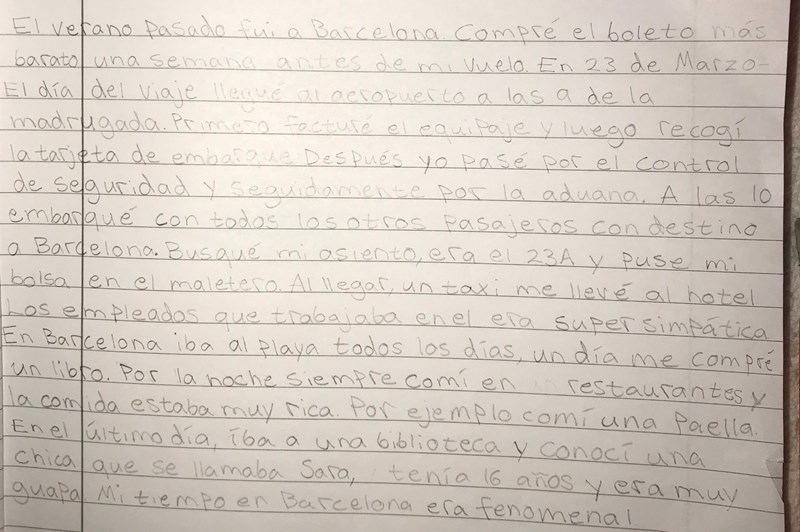 El verano pasado fui a Barcelona. Compré el boleto más
barato una semana antes de mi vuelo. En 23 de Marzo-
El día del viaje llegué al aeropuerto a las 9 de la
madrugada. Primero facturé el equipaje y luego recogí
la tarjeta de embarque Después yo pasé por el control
de seguridad y seguidamente por la aduana. A las 10
embarqué con todos los otros pasajeros con destino
a Barcelona. Busqué mi asiento, era el 23A y puse mi
bolsa en el maletero. Al llegar, un taxi me llevé al hotel
Los empleados que trabajaba en el era super simpática
En Barcelona iba al playa todos los días, un día me compré
un libro. Por la noche siempre comí en restaurantes y
la comida estaba muy rica. Por ejemplo comí una Paella.
En el último día, iba a una biblioteca y conocí una
chica que se llamaba Sara, tenía 16 años y era muy
guapa. Mi tiempo en Barcelona era fenomenal